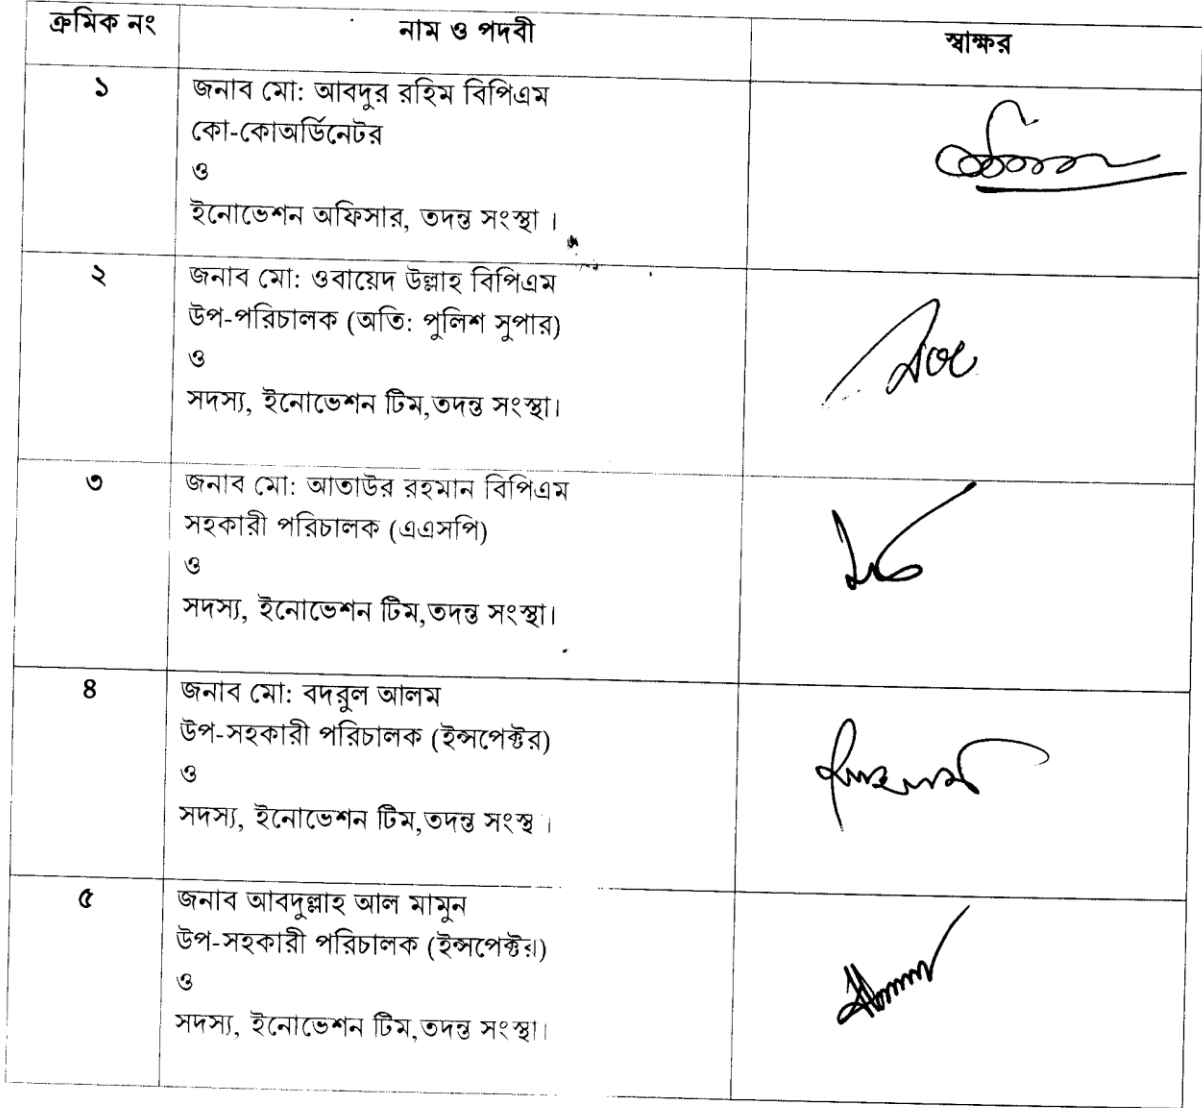 ক্রমিক নং নাম ও পদবী স্বাক্ষর
১ জনাব মো: আবদুর রহিম বিপিএম
কো-কোঅর্ডিনেটর
ও
ইনোভেশন অফিসার, তদন্ত সংস্থা ।
২ জনাব মো: ওবায়েদ উল্লাহ বিপিএম
উপ-পরিচালক (অতি: পুলিশ সুপার)
ও
সদস্য, ইনোভেশন টিম,তদন্ত সংস্থা।
৩ জনাব মো: আতাউর রহমান বিপিএম
সহকারী পরিচালক (এএসপি)
ও
সদস্য, ইনোভেশন টিম,তদন্ত সংস্থা।
৪ জনাব মো: বদরুল আলম
উপ-সহকারী পরিচালক (ইন্সপেক্টর)
ও
সদস্য, ইনোভেশন টিম,তদন্ত সংস্থ ।
৫ জনাব আবদুল্লাহ আল মামুন
উপ-সহকারী পরিচালক (ইন্সপেক্টর)
ও
সদস্য, ইনোভেশন টিম,তদন্ত সংস্থা।